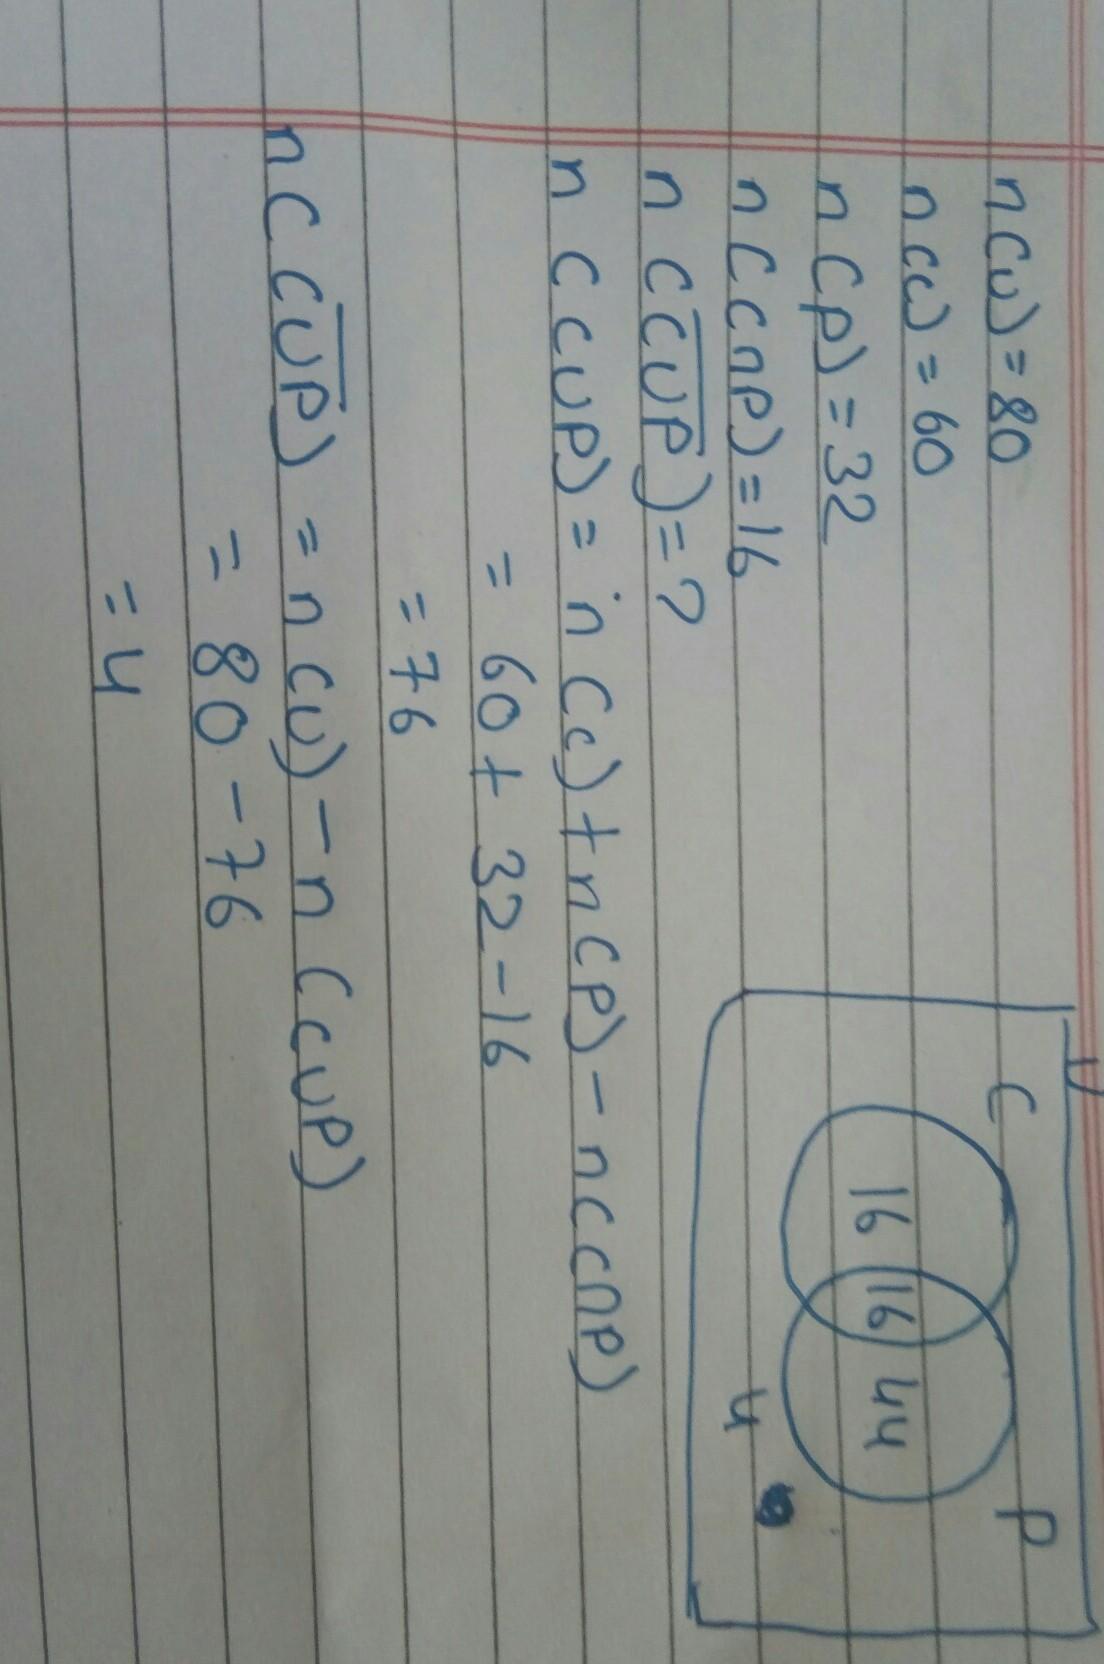 n(U) = 80
n(c) = 60
n(p) = 32
n(cnp) = 16
n(c̅U̅P̅) = ?
n(cUP) = n(c) + n(P) - n(cnp)
= 60 + 32 - 16
= 76
n(c̅U̅P̅) = n(U) - n(cUP)
= 80 - 76
= 4
U
C P
16 16 44
4